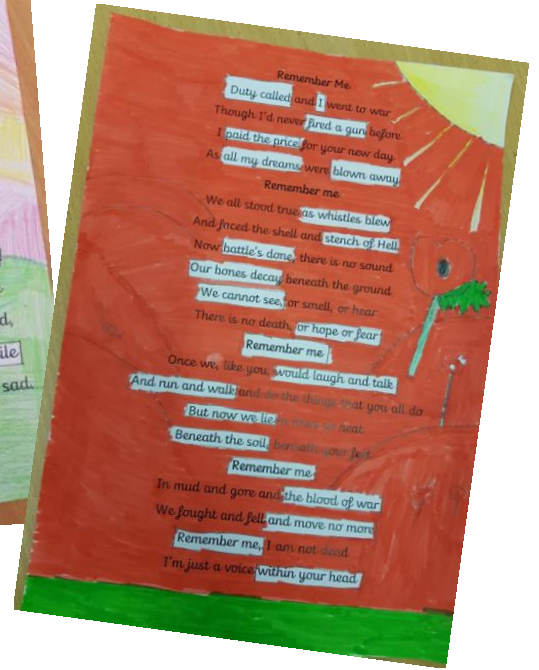 Remember Me
Duty called and I went to war
Though I'd never fired a gun before
I paid the price for your new day
As all my dreams were blown away
Remember me
We all stood true as whistles blew
And faced the shell and stench of Hell
Now battle's done, there is no sound
Our bones decay beneath the ground
We cannot see, or smell, or hear
There is no death, or hope or fear
Remember me
Once we, like you, would laugh and talk
And run and walk and do the things that you all do
But now we lie in rows so neat
Beneath the soil, beneath your feet
Remember me
In mud and gore and the blood of war
We fought and fell and move no more
Remember me, I am not dead
I'm just a voice within your head
d,
ile
sad.